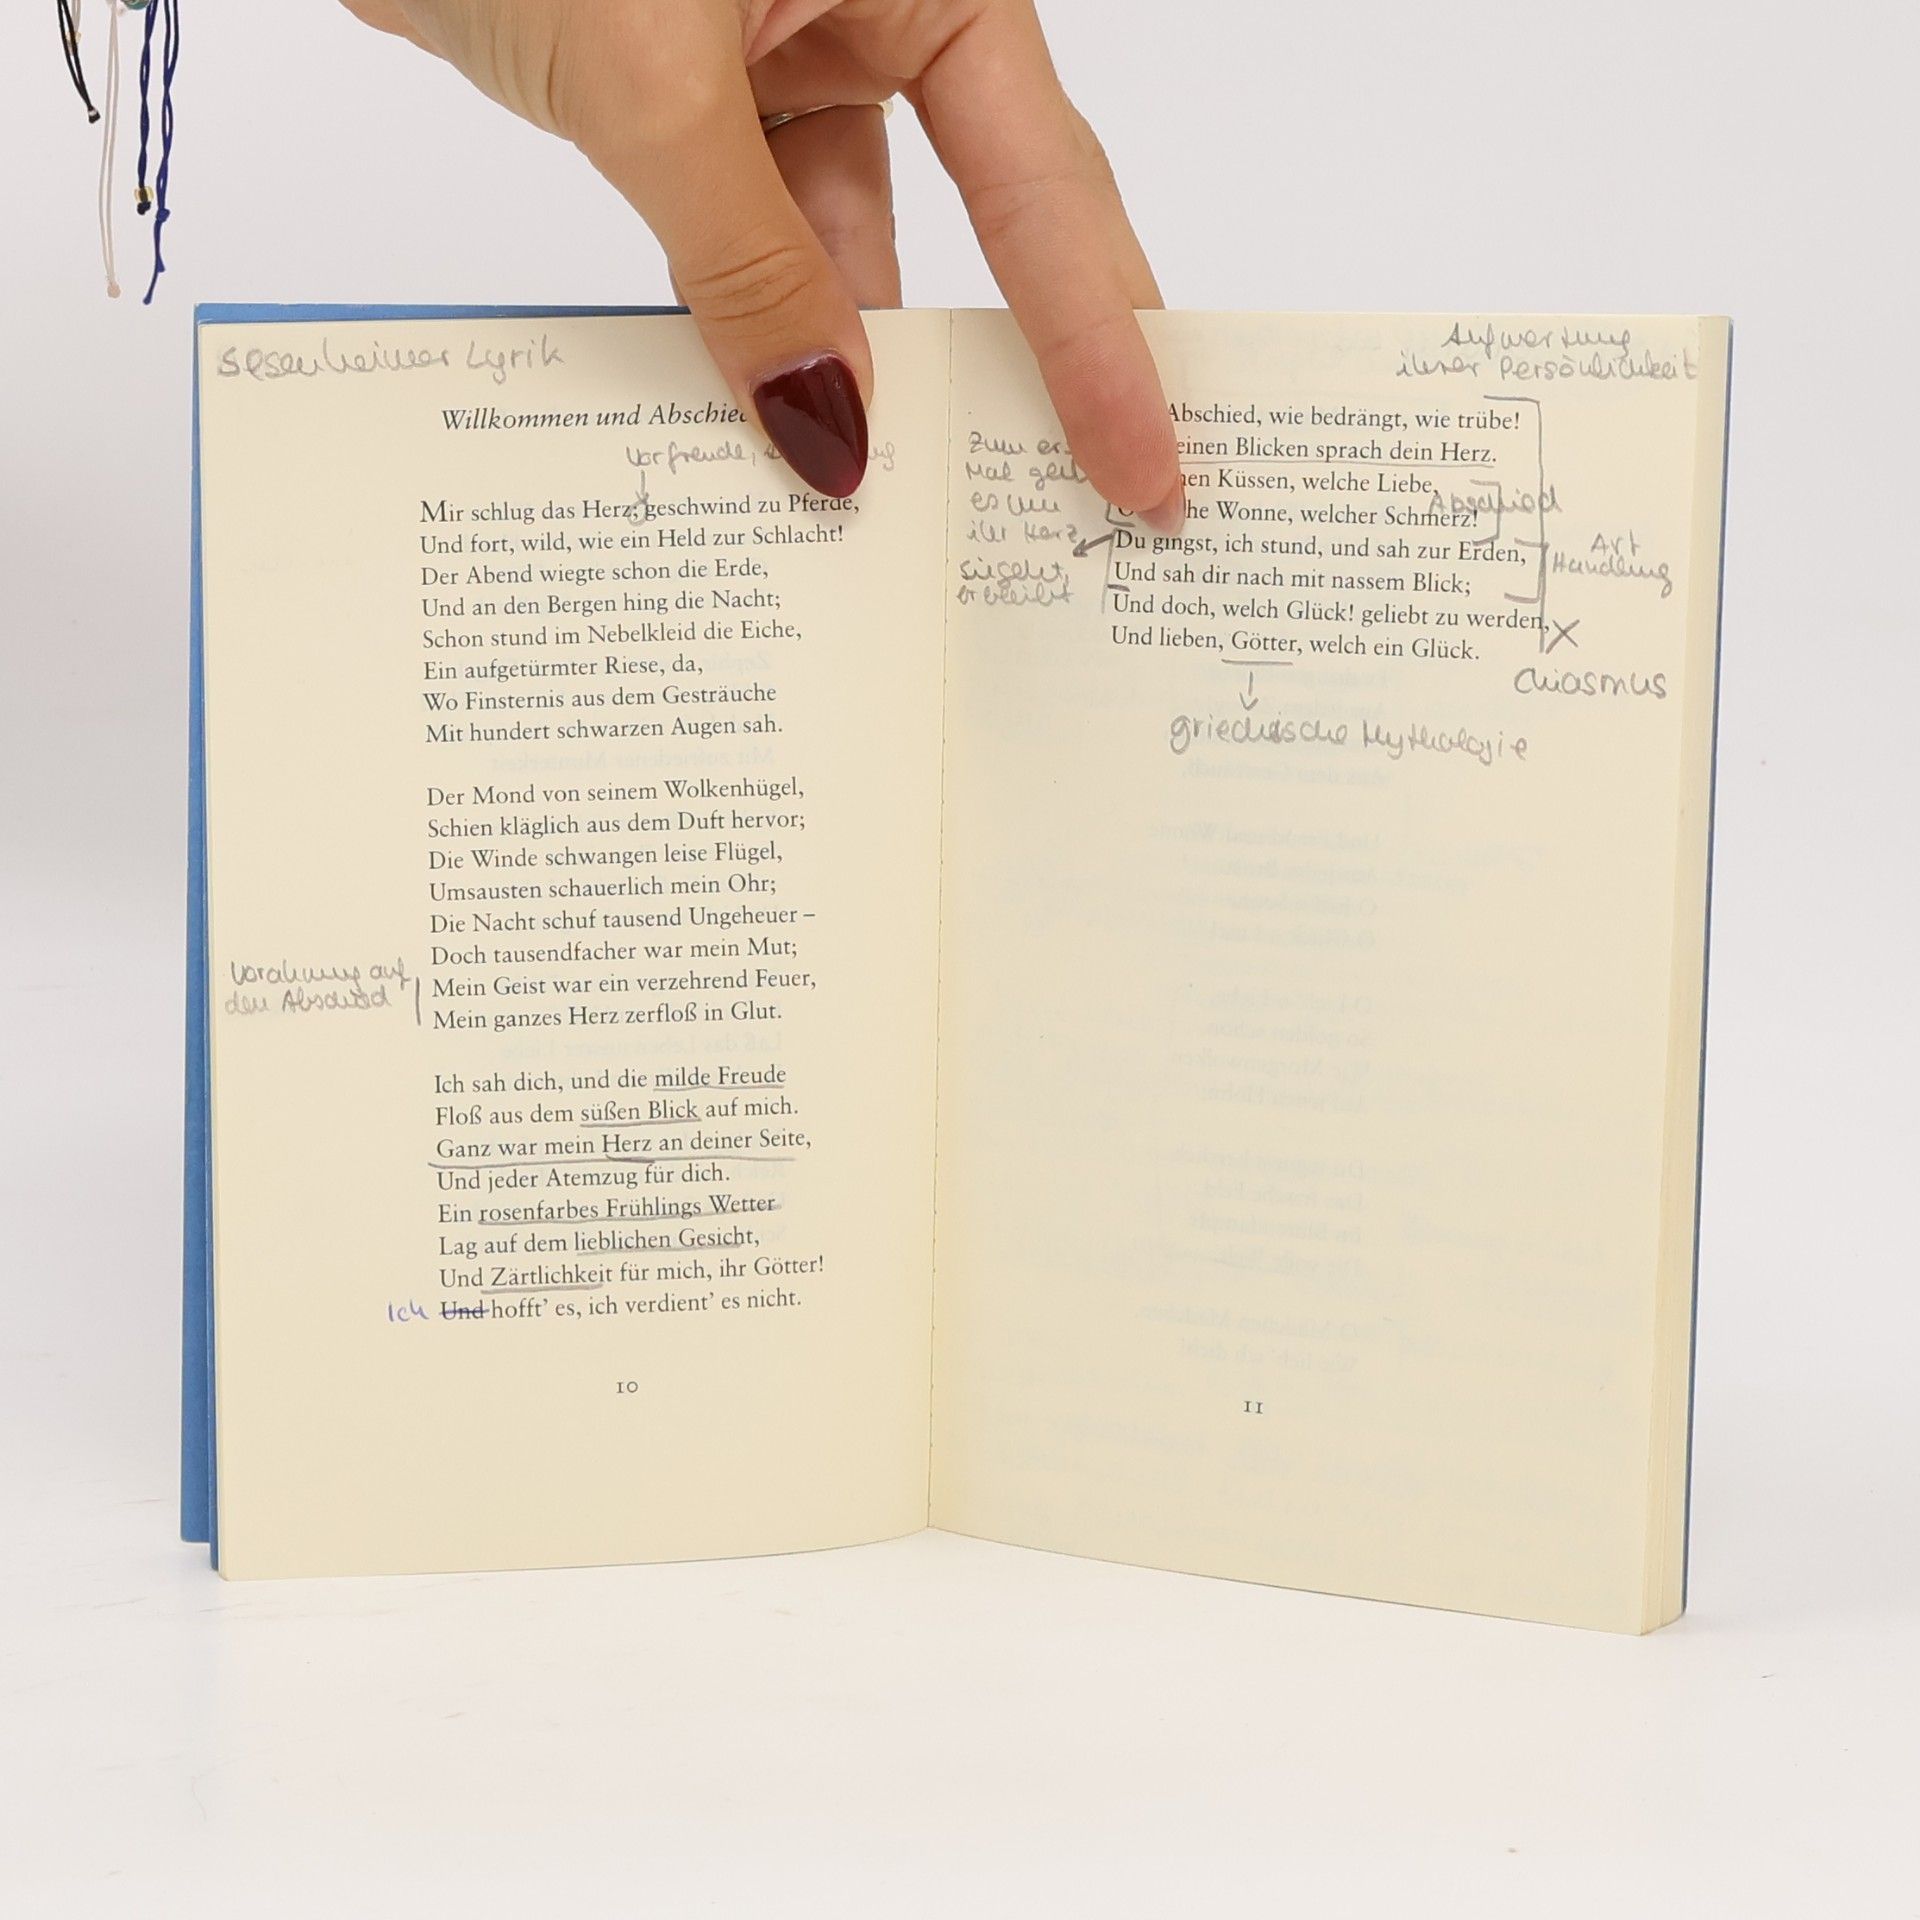 Sesenheimer Lyrik
Willkommen und Abschied
Vorfreude,
Mir schlug das Herz; geschwind zu Pferde,
Und fort, wild, wie ein Held zur Schlacht!
Der Abend wiegte schon die Erde,
Und an den Bergen hing die Nacht;
Schon stund im Nebelkleid die Eiche,
Ein aufgetürmter Riese, da,
Wo Finsternis aus dem Gesträuche
Mit hundert schwarzen Augen sah.
Der Mond von seinem Wolkenhügel,
Schien kläglich aus dem Duft hervor;
Die Winde schwangen leise Flügel,
Umsausten schauerlich mein Ohr;
Die Nacht schuf tausend Ungeheuer –
Doch tausendfacher war mein Mut;
Vorahnung auf
den Abschied
Mein Geist war ein verzehrend Feuer,
Mein ganzes Herz zerfloß in Glut.
Ich sah dich, und die milde Freude
Floß aus dem süßen Blick auf mich.
Ganz war mein Herz an deiner Seite,
Und jeder Atemzug für dich.
Ein rosenfarbes Frühlings Wetter
Lag auf dem lieblichen Gesicht,
Und Zärtlichkeit für mich, ihr Götter!
Ich Und hofft’ es, ich verdient’ es nicht.
10
Aufwertung
ihrer Persönlichkeit
Abschied, wie bedrängt, wie trübe!
einen Blicken sprach dein Herz.
Küssen, welche Liebe,
Wonne, welcher Schmerz!
Du gingst, ich stund, und sah zur Erden,
Und sah dir nach mit nassem Blick;
Und doch, welch Glück! geliebt zu werden,
Und lieben, Götter, welch ein Glück.
Zum
Mal geht
es um
ihr Herz
sie geht,
er bleibt
Abschied
Art
Handlung
Chiasmus
griechische Mythologie
11